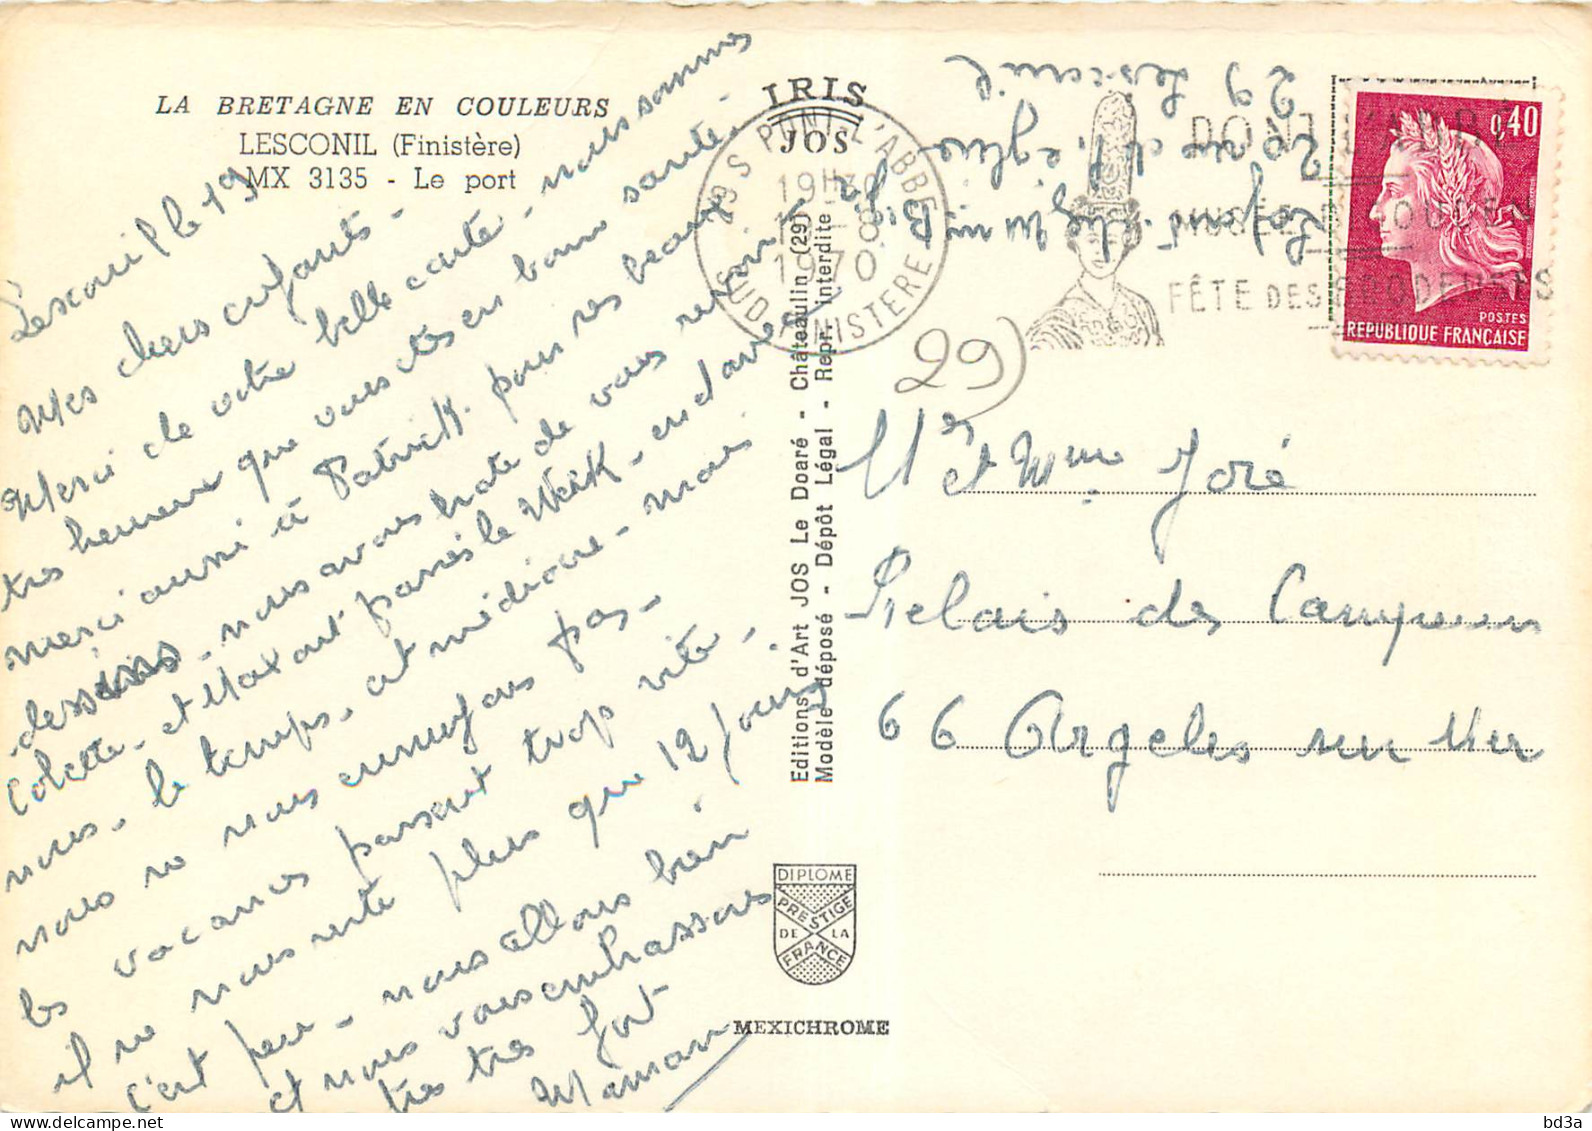 LA BRETAGNE EN COULEURS
LESCONIL (Finistère)
MX 3135 - Le port
Lesconil le 19
Mes chers enfants -
Merci de votre belle carte - nous sommes
très heureux que vous êtes en bonne santé.
merci aussi à Patrick pour ses beaux
dessins - nous avons hâte de vous revoir
Colette - et Max ont passés le Week-end avec
nous - le temps - est médiocre - mais
nous ne nous ennuyons pas -
les vacances passent trop vite -
il ne nous reste plus que 12 jours
c'est peu - nous allons bien
et nous vous embrassons
très très fort
Maman
IRIS
JOS
29 S PONT-L'ABBE
19H30
8
1970
SUD FINISTERE
MUSÉE
FÊTE DES BRODEUSES
29 Lesconil
20 rue de l'église
0,40
POSTES
REPUBLIQUE FRANÇAISE
29)
Editions d'Art JOS Le Doaré - Châteaulin (29)
Modèle déposé - Dépôt Légal - Repr. interdite
Mr et Mme José
Relais des
66 Argeles sur Mer
DIPLOME
PRESTIGE
DE LA
FRANCE
MEXICHROME
bd3a